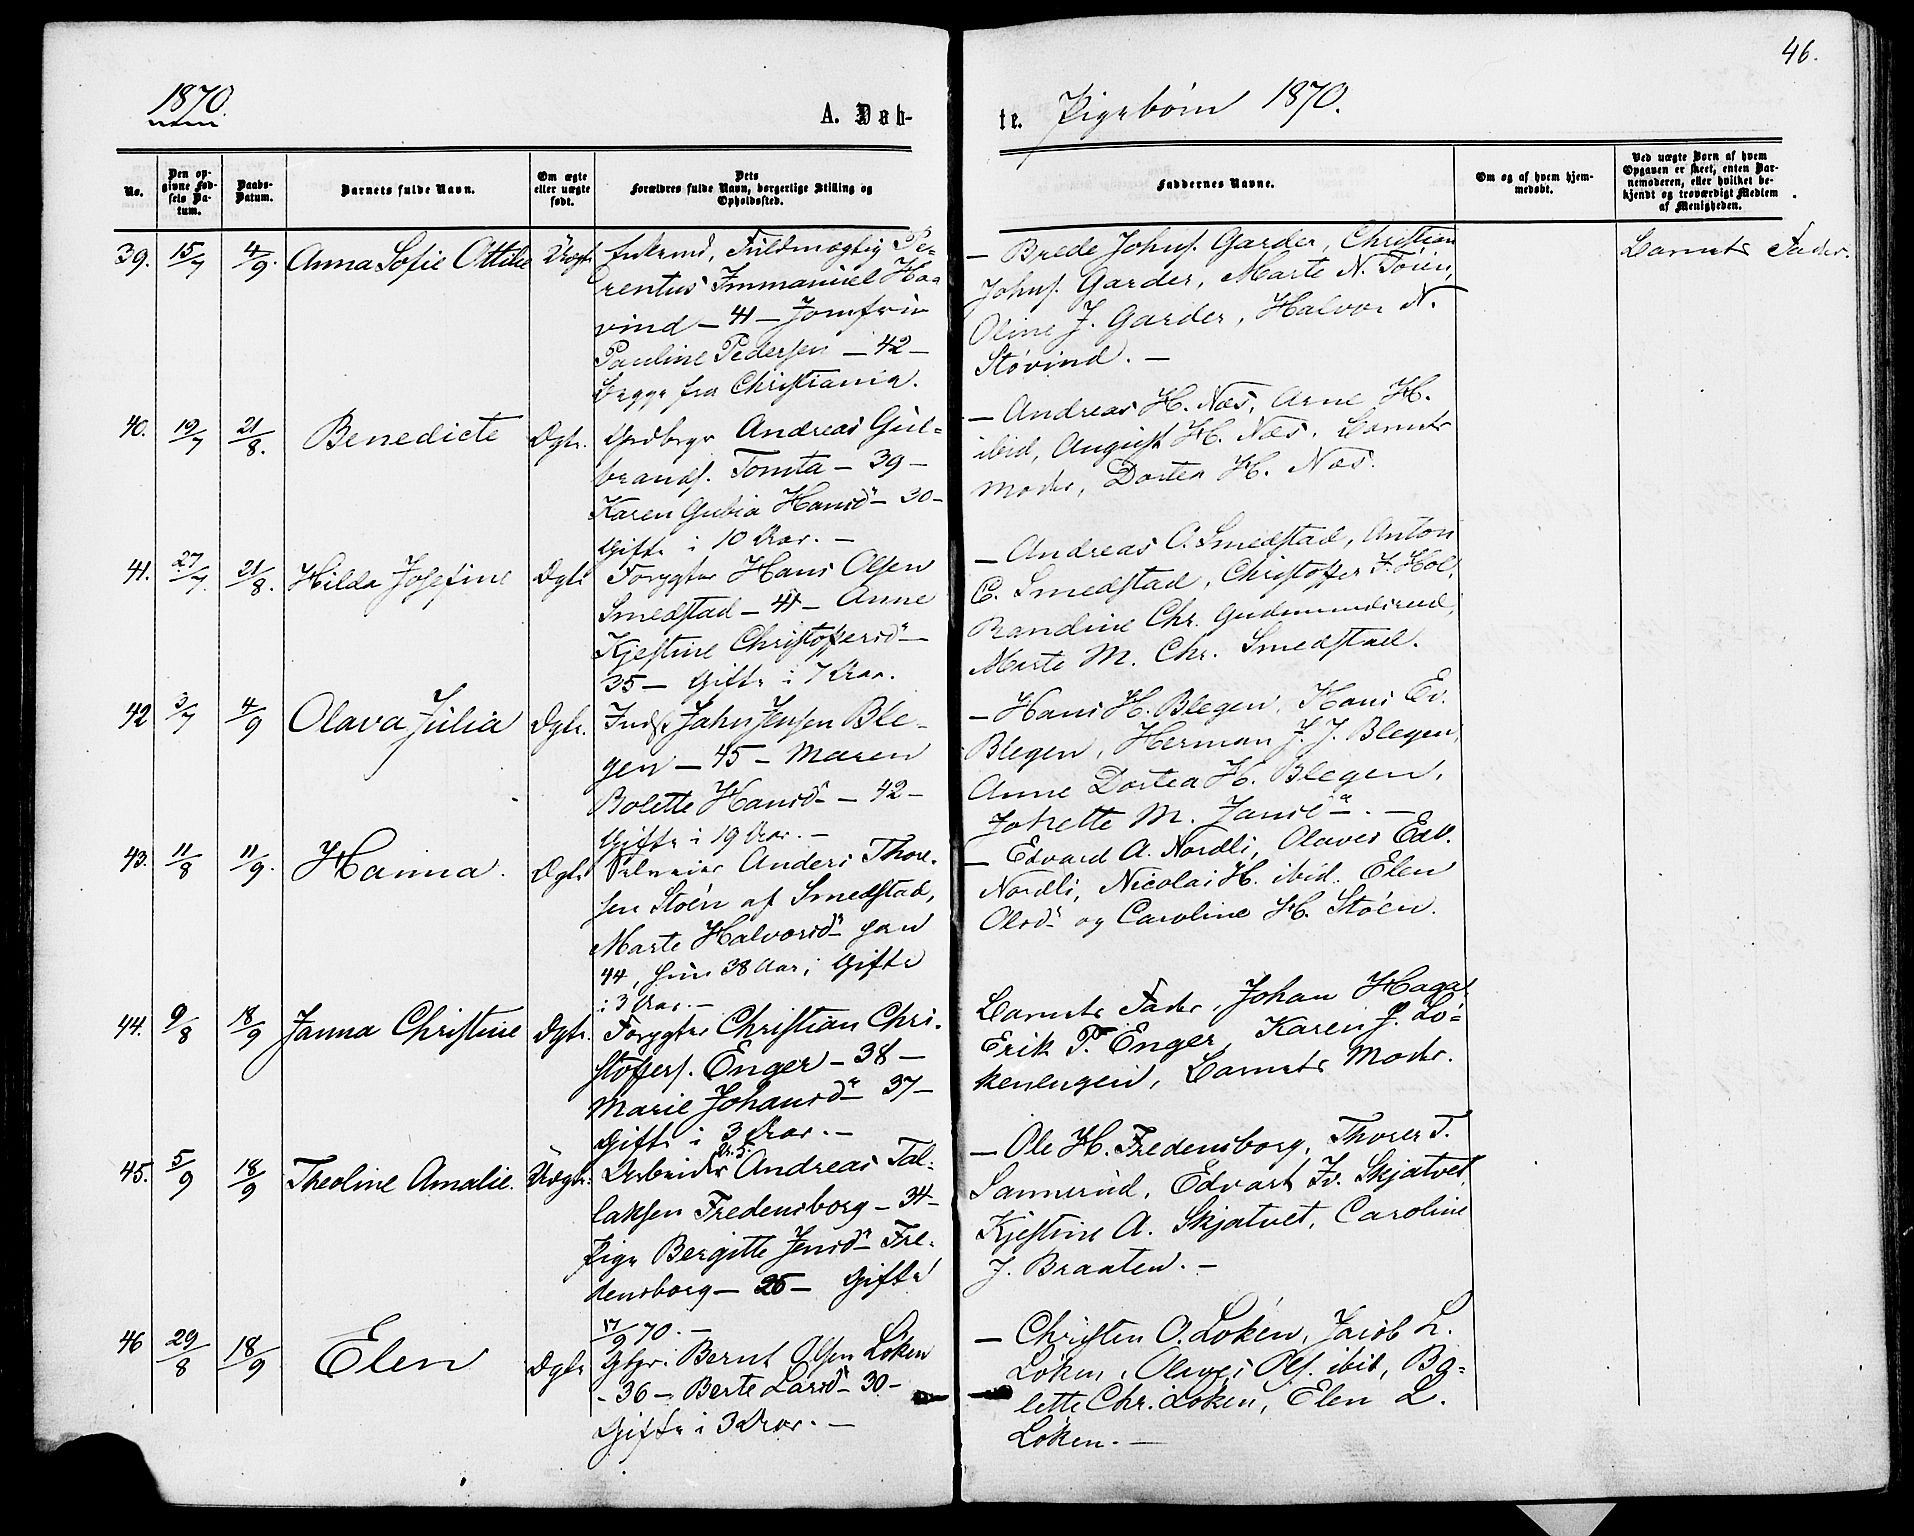 46.
1870.
A. Døb-
te. Pigebørn 1870.
No.
Den op-
givne Fød-
sels Da-
tum.
Daabs-
Datum.
Barnets fulde Navn.
Om ægte
eller uægte
født.
Dets
Forældres fulde Navn, borgerlige Stilling og
Opholdssted.
Faddernes Navne.
Om og af hvem hjem-
medøbt.
Ved uægte Børn af hvem
Opgaven er skeet, enten Bar-
nemoderen, eller hvilket be-
kjendt og troværdigt Medlem
af Menigheden.
39. 15/7 4/9. Anna Sofie Ottilie Uægt. Enkemd, Fuldmægtig Pe-
rentus Immanuel Hoa-
vind – 41 – Jomfru
Pauline Pedersen – 42 –
begge fra Christiania.
– Brede Johns. Garder, Christian
Johns. Garder, Marte N. Töien,
Oline J. Garder, Halvor N.
Støvind. –
Barnets Fader.
40. 19/7 21/8. Benedicte Ægte. Gulbrands. Andreas Gul-
brands. Tomta – 39 –
Karen Gubia Hansd – 30 –
Gifte i 10 Aar. –
– Andreas H. Næs, Arne H.
ibid, August H. Næs, Barnets
Moder, Dortea H. Næs.
41. 27/7. 21/8. Hilda Josefine Ægte Forpgter Hans Olsen
Smedstad – 41 – Anne
Kjestine Christoffersd –
35 – Gifte i 7 Aar.
– Andreas C. Smedstad, Anton
C. Smedstad, Christoffer F. Hol,
Randine Chr. Gudmundsrud,
Marte M. Chr. Smedstad.
42 3/7 4/9 Olava Julia Ægte. Inds. Jahn Jensen Ble-
gen – 45 – Maren
Bolette Hansd – 42 –
Gifte i 19 Aar. –
– Hans H. Blegen, Hans Ev.
Blegen, Herman J. J. Blegen,
Anne Dortea H. Blegen,
Johette M. Jansd. –
43. 11/8 11/9. Hanna. Ægte Selveier Anders Thor-
sen Stöen af Smedstad,
Marte Halvorsd han
44, hun 38 Aar; Gifte
i 3 Aar. –
– Edvard A. Nordli, Olaves Edv.
Nordli, Nicolai H. ibid. Elen
Olsd og Caroline H. Stöen.
44. 9/8 18/9 Janna Christine Ægte. Forpgter Christian Chri-
stoffers. Enger – 38 –
Marie Johansd 37 –
Gifte i 3 Aar. –
Barnets Fader, Johan Haga,
Erik P. Enger, Karen J. Lö-
kenengen, Barnets Moder.
45. 5/9 18/9 Theoline Amalie. Uægte. Arbeider Andreas Tal-
laksen Fredensborg – 34 –
Pige Bergitte Jensd Fre-
densborg – 25 – Gifte
17/9 70. –
– Ole H. Fredensborg, Thorer T.
Sannerud, Edvart Fr. Skjatvet,
Kjestine A. Skjatvet, Caroline
J. Braaten. –
46 29/8 18/9 Elen Ægte Gbgr. Bernt Olsen Löken
– 36 – Berte Larsd – 30 –
Gifte i 3 Aar. –
– Christen O. Löken, Jacob L.
Löken, Olaves Ols. ibid, Bo-
lette Chr. Löken, Elen L.
Löken. –